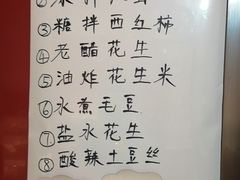 ③糖拌西红柿
④老醋花生
⑤油炸花生米
⑥水煮毛豆
⑦盐水花生
⑧酸辣土豆丝